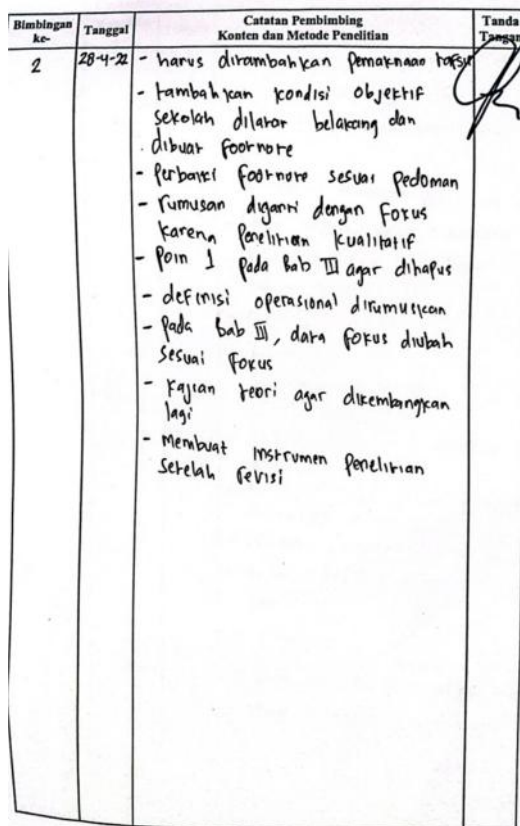 Bimbingan ke-
Tanggal
Catatan Pembimbing
Konten dan Metode Penelitian
Tanda Tangan
2
28-4-22
- harus ditambahkan pemaknaan tafsir
- tambahkan kondisi objektif
sekolah dilatar belakang dan
dibuat footnote
- Perbaiki footnote sesuai pedoman
- rumusan diganti dengan fokus
karena Penelitian kualitatif
- Poin 1 pada Bab III agar dihapus
- definisi operasional dirumuskan
- Pada Bab III, data fokus diubah
sesuai fokus
- Kajian teori agar dikembangkan
lagi
- Membuat instrumen Penelitian
setelah revisi